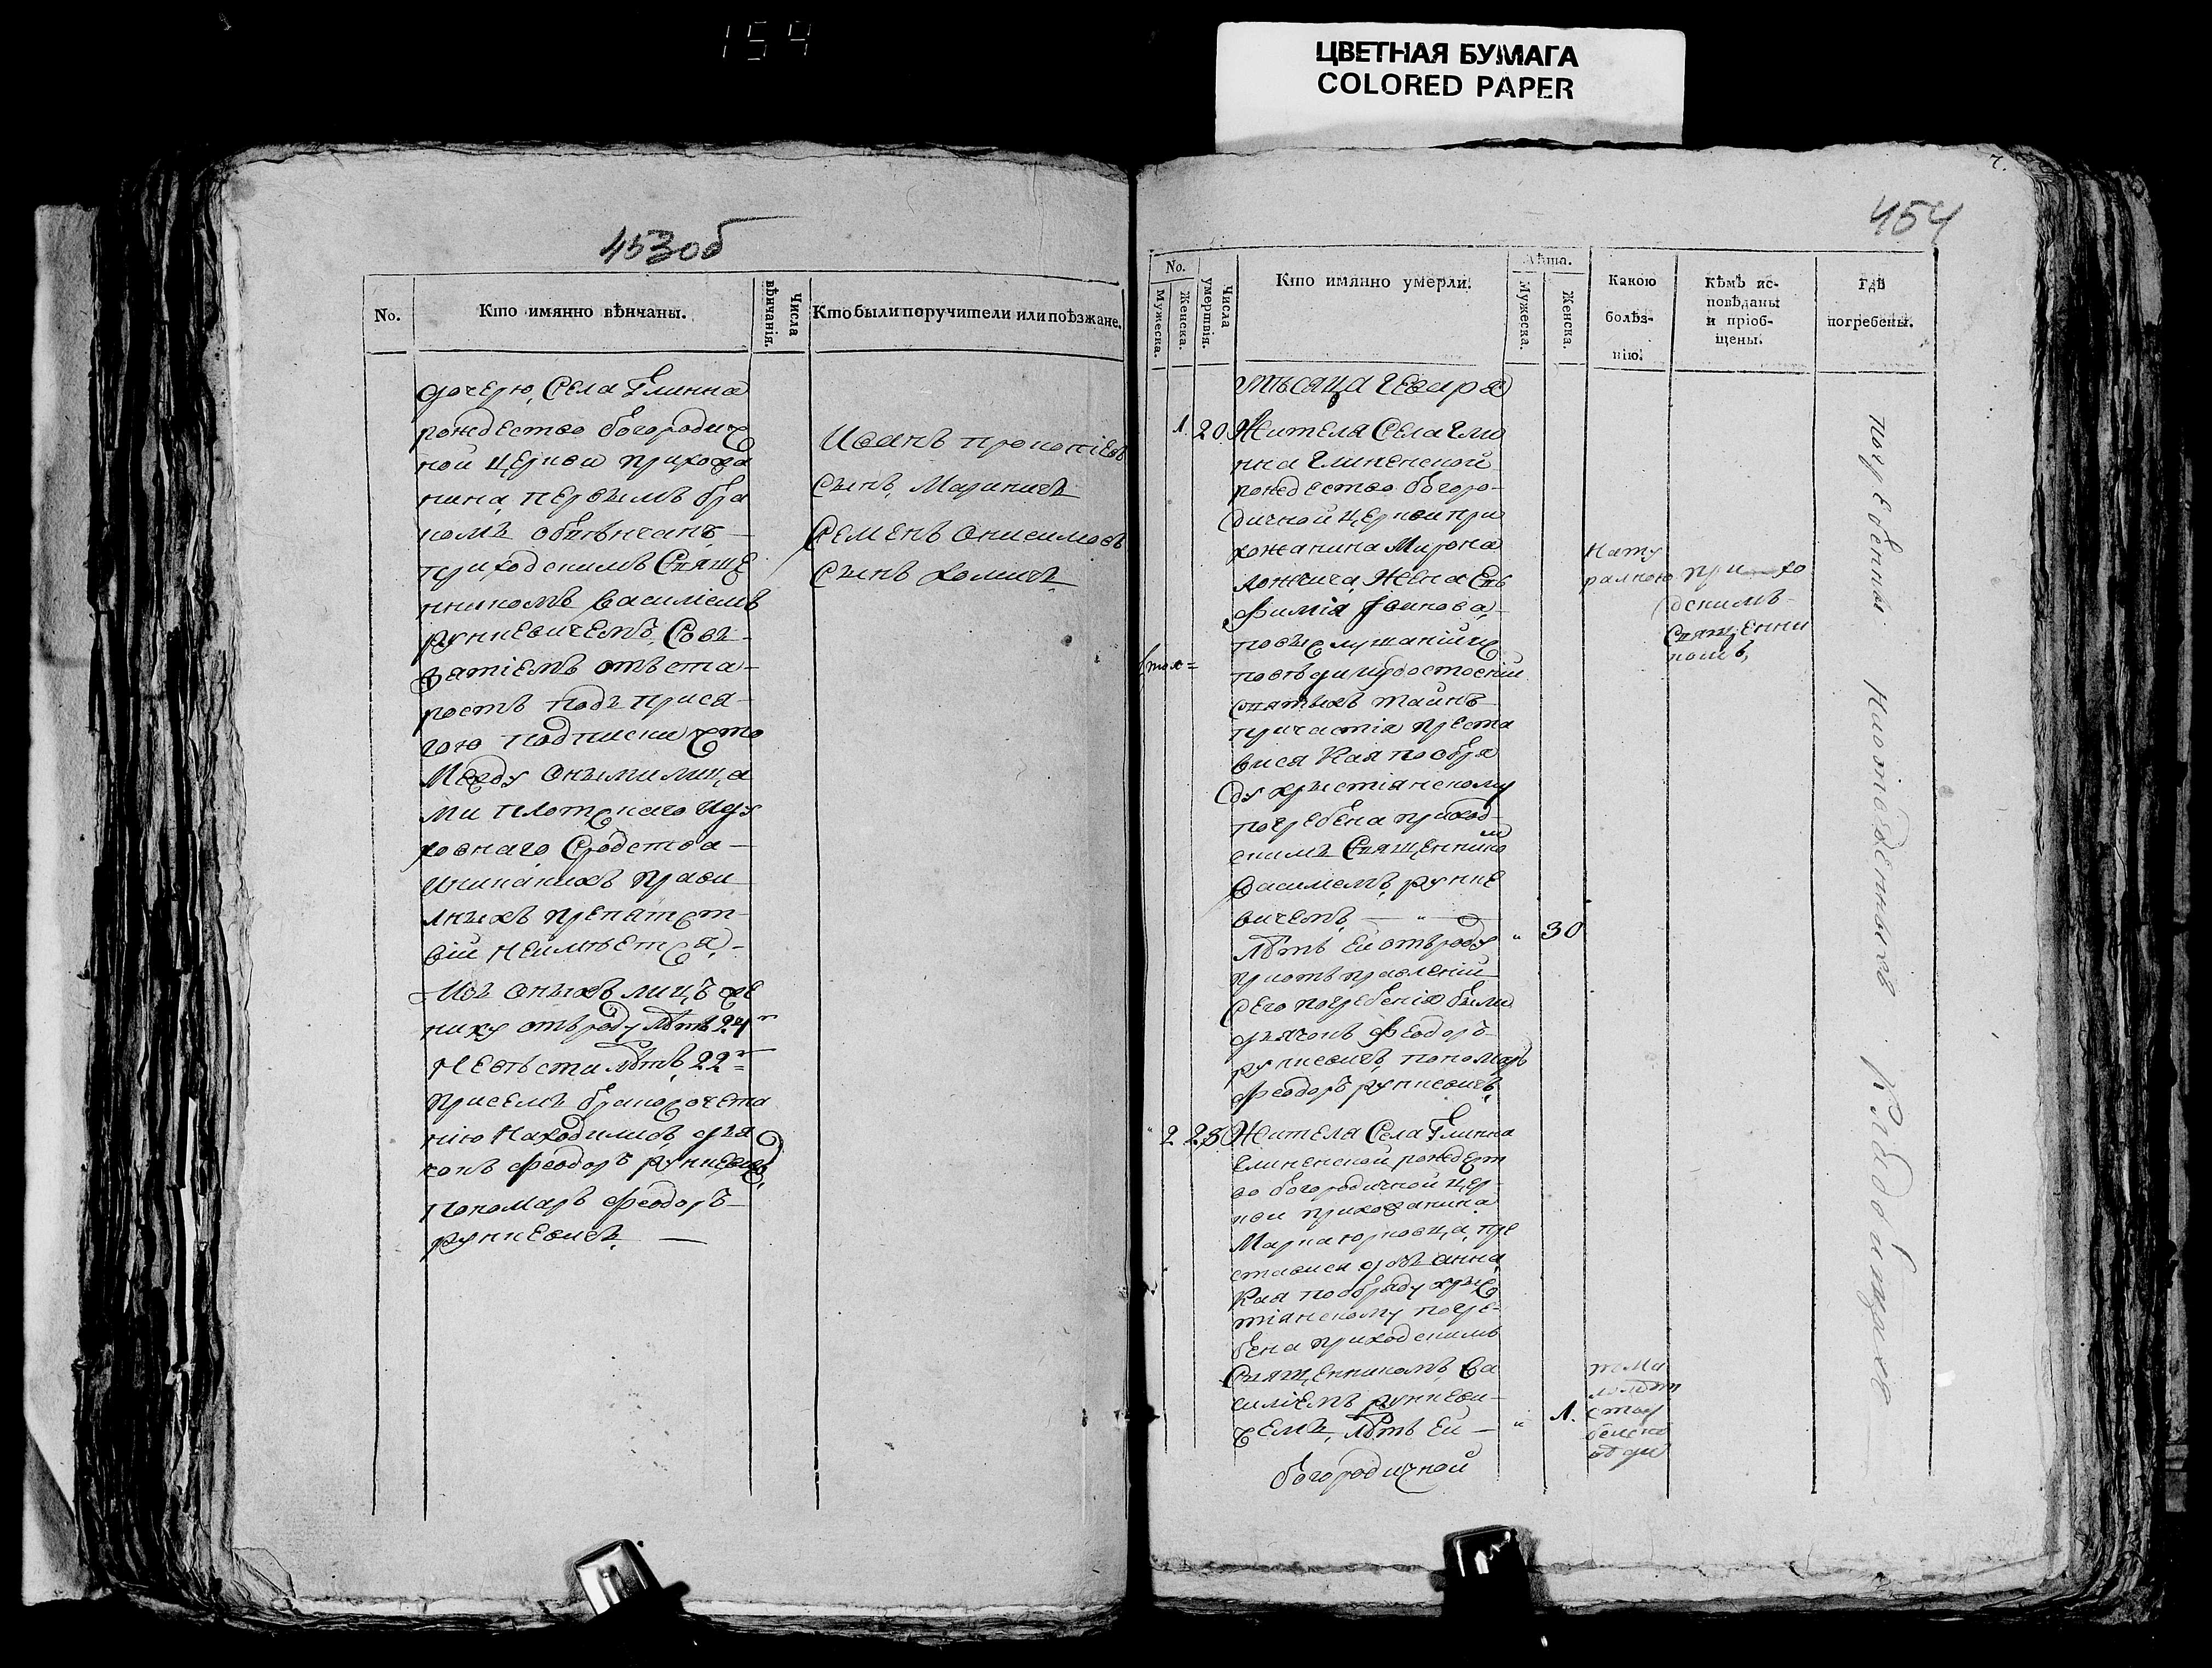 154
ЦВЕТНАЯ БУМАГА
COLORED PAPER
453об
No.
Кто имянно вѣнчаны.
Числа вѣнчанія.
Кто были поручители или поѣзжане.
дочерю, Села Глинна
рождество богородич
ной церкви прихожа
нина, первымъ бра
комъ обвѣнчанъ
приходскимъ Свяще
нникомъ Василіемъ
рункевичемъ, Совз
затіемъ отъ ста-
ростъ подъ прися-
гою подписки что
Между оными лица
ми плотскаго иду
ховнаго Сродства —
иникакихъ прави
лныхъ препятст
вій неимѣется,-
Изъ оныхъ лицъ же
ниху отъ роду лѣтъ 24
Невѣсти лѣтъ 22
присемъ бракосочета
нію Находились, дья
конъ Феодоръ рункевичъ,
пономаръ Феодоръ
рункевичъ, —
Иванъ прокопіевъ
Сынъ, Мариничъ
Семенъ Онисимовъ
Сынъ хомичъ
454
No.
Мужеска.
Женска.
Числа умертвія.
Кто имянно умерли.
Лѣта.
Мужеска.
Женска.
Какою болѣз- нію.
Кѣмъ ис- повѣданы и пріоб- щены.
гдѣ погребены.
Мѣсяца Генваря
1. 20 Жителя Села Гли
нна Глиненской
рождество богоро-
дичной церкви при
хожанина Мирона
Жена Ев
фимія
по
исповѣди
Святыхъ таинъ
причастія преста
вися Кая по обря
ду христіянскому
погребена приход-
скимъ Священнико
Василіемъ рунке
вичемъ, — " —
Лѣтъ ей отъ роду " 30
при отправленіи
Сего погребенія были
дьяконъ Феодоръ
рункевичъ, пономаръ
Феодоръ рункевичъ,
Нату
ралною
при хо
дскимъ
Священни
комъ,
" 2 28 Жителя Села Глинна
Глиненской рождест
во богородичной цер
кви прихожанина
Марка преста
вися дочъ анна
Кая по обряду хрис
тіянскому погре-
бена приходскимъ
Священникомъ Ва
силіемъ рункеви-
чемъ, лѣтъ ей — " 1.
богородичной
погребенны на отведенныхъ кладбищахъ